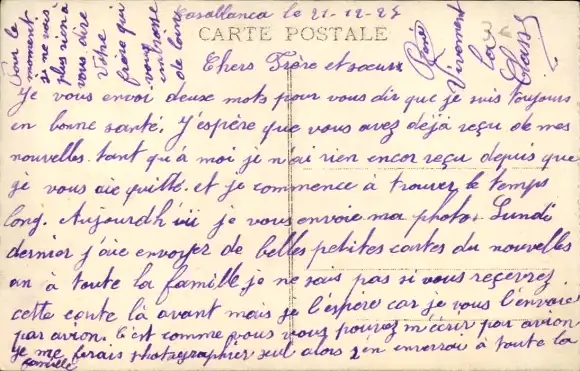 Casablanca le 21-12-27
CARTE POSTALE
Chers Frère et soeurs
Je vous envoi deux mots pour vous dir que je suis toujours
en bonne santé. J'espère que vous avez déjà reçu de mes
nouvelles. tant qu'à moi je n'ai rien encor reçu depuis que
je vous aie quitté. et je commence à trouver le temps
long. Aujourdh'ui je vous envoie ma photo. Lundi
dernier j'aie envoyer de belles petites cartes du nouvelles
an à toute la famille je ne sais pas si vous reçevrez
cette carte là avant mais je l'espère car je vous l'envoie
par avion. C'est comme vous vous pouvez m'écrir par avion
Je me ferais photographier seul alors j'en enverrai à toute la
famille
Pour le
moment
je ne vois
plus rien à
vous dire
Votre
frère qui
vous
embrasse
de loin
René
Vivement
la